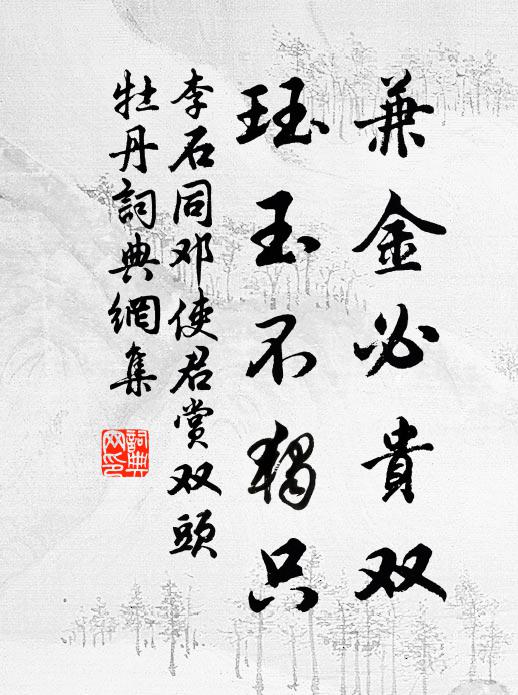 兼金必貴双
珏玉不独只
李石同邓使君赏双頭
牡丹詞典網集
詞典网印